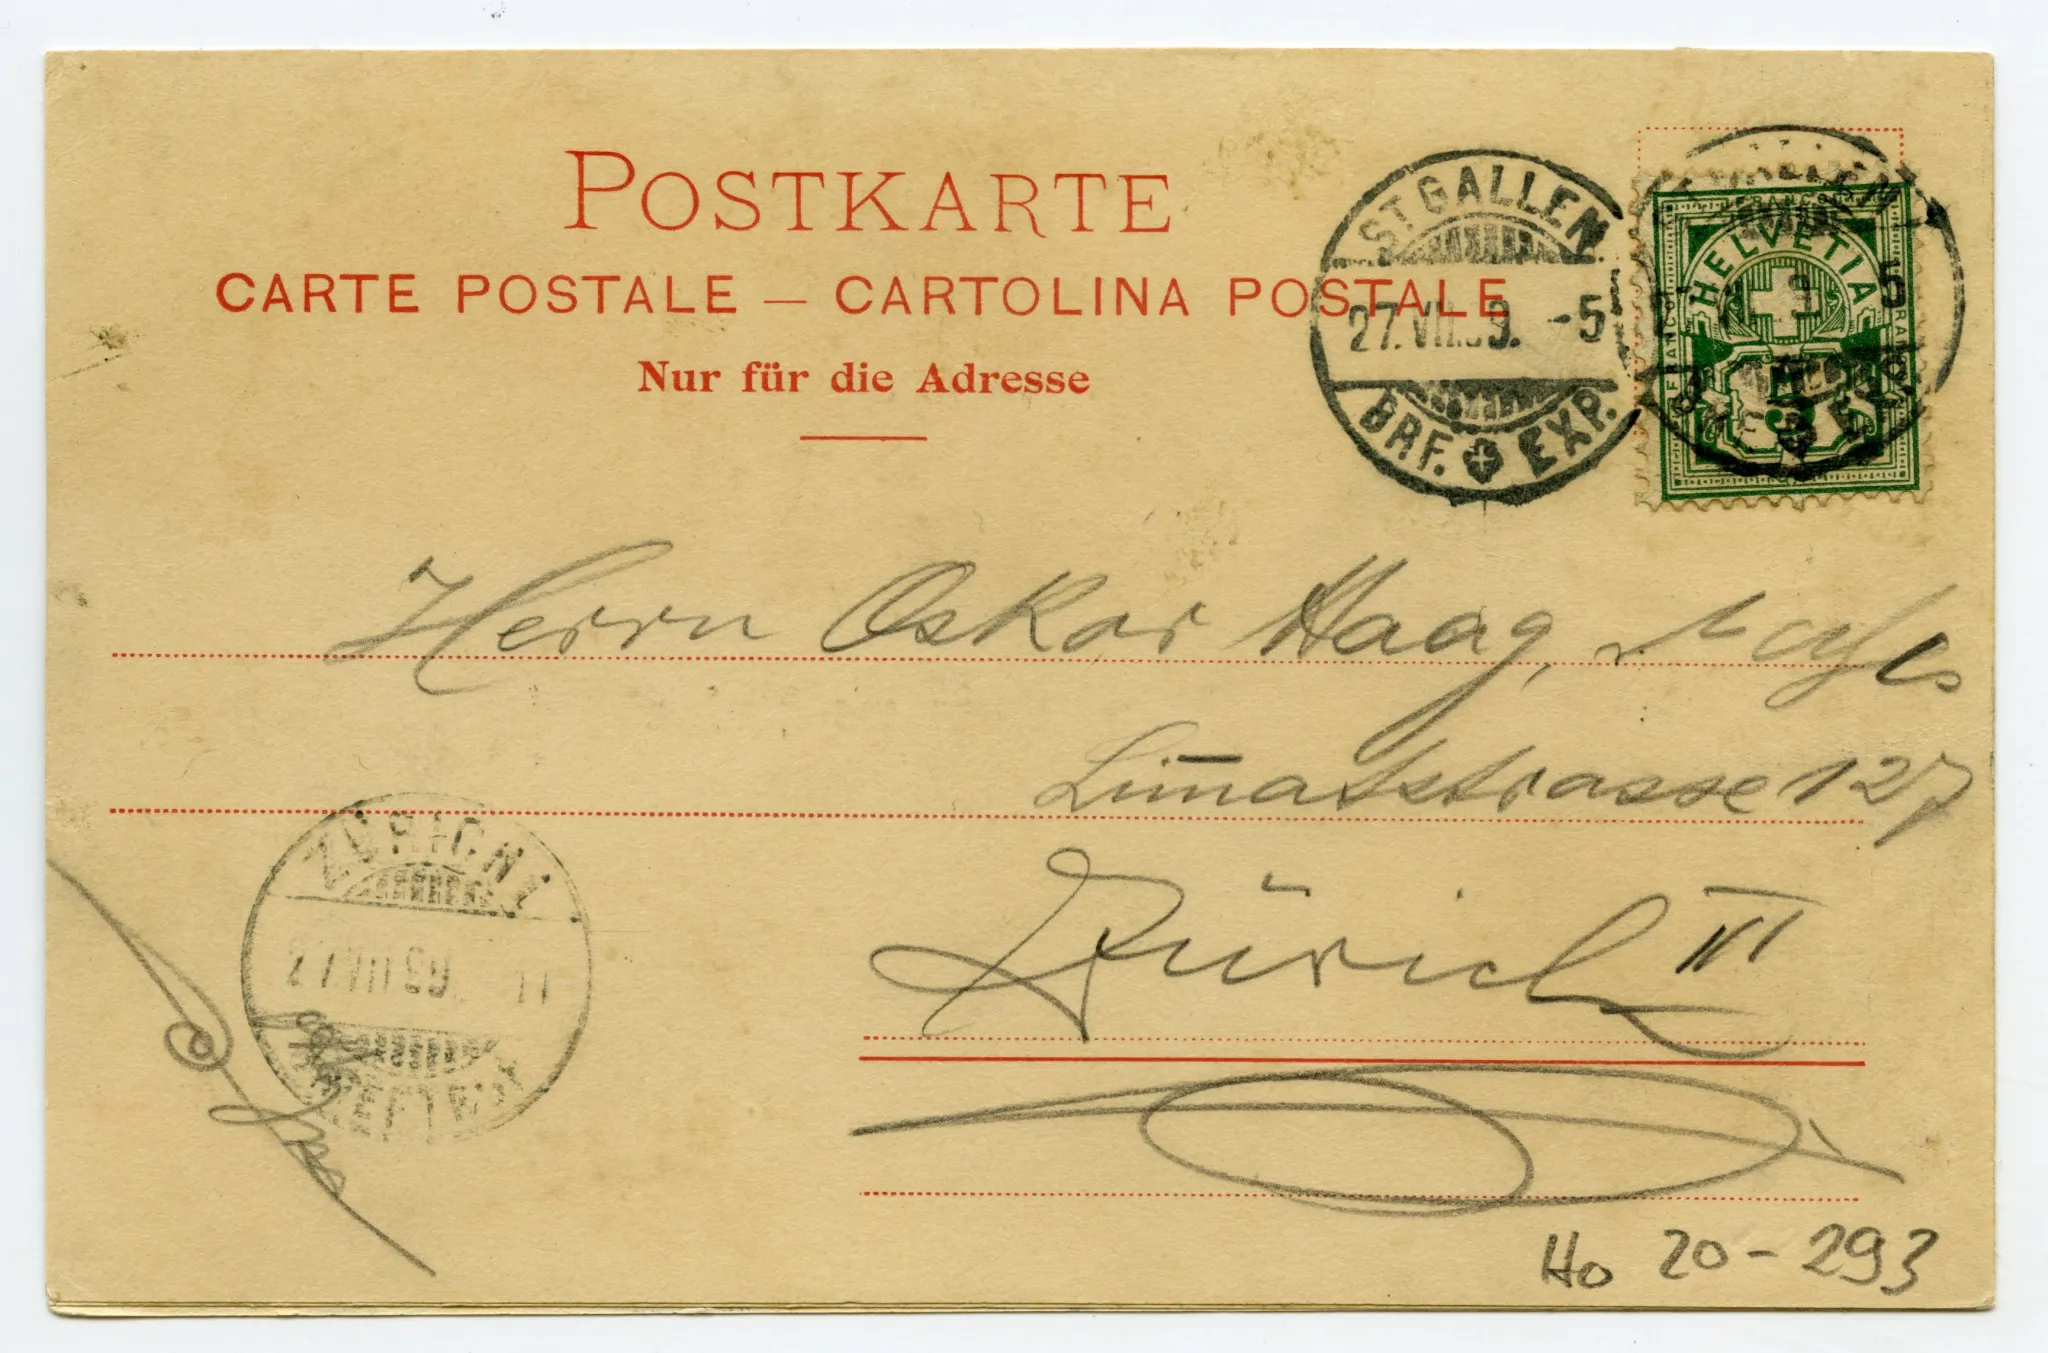 POSTKARTE
CARTE POSTALE — CARTOLINA POSTALE
Nur für die Adresse
ST. GALLEN
27.VII.99. -5
BRF. EXP.
FRANCO
HELVETIA
FRANCO
FRANCO
5
Herrn Oskar Haag,
Limmatstrasse 127
Zürich III
ZÜRICH
27.VII.99. 11
Ho 20-293